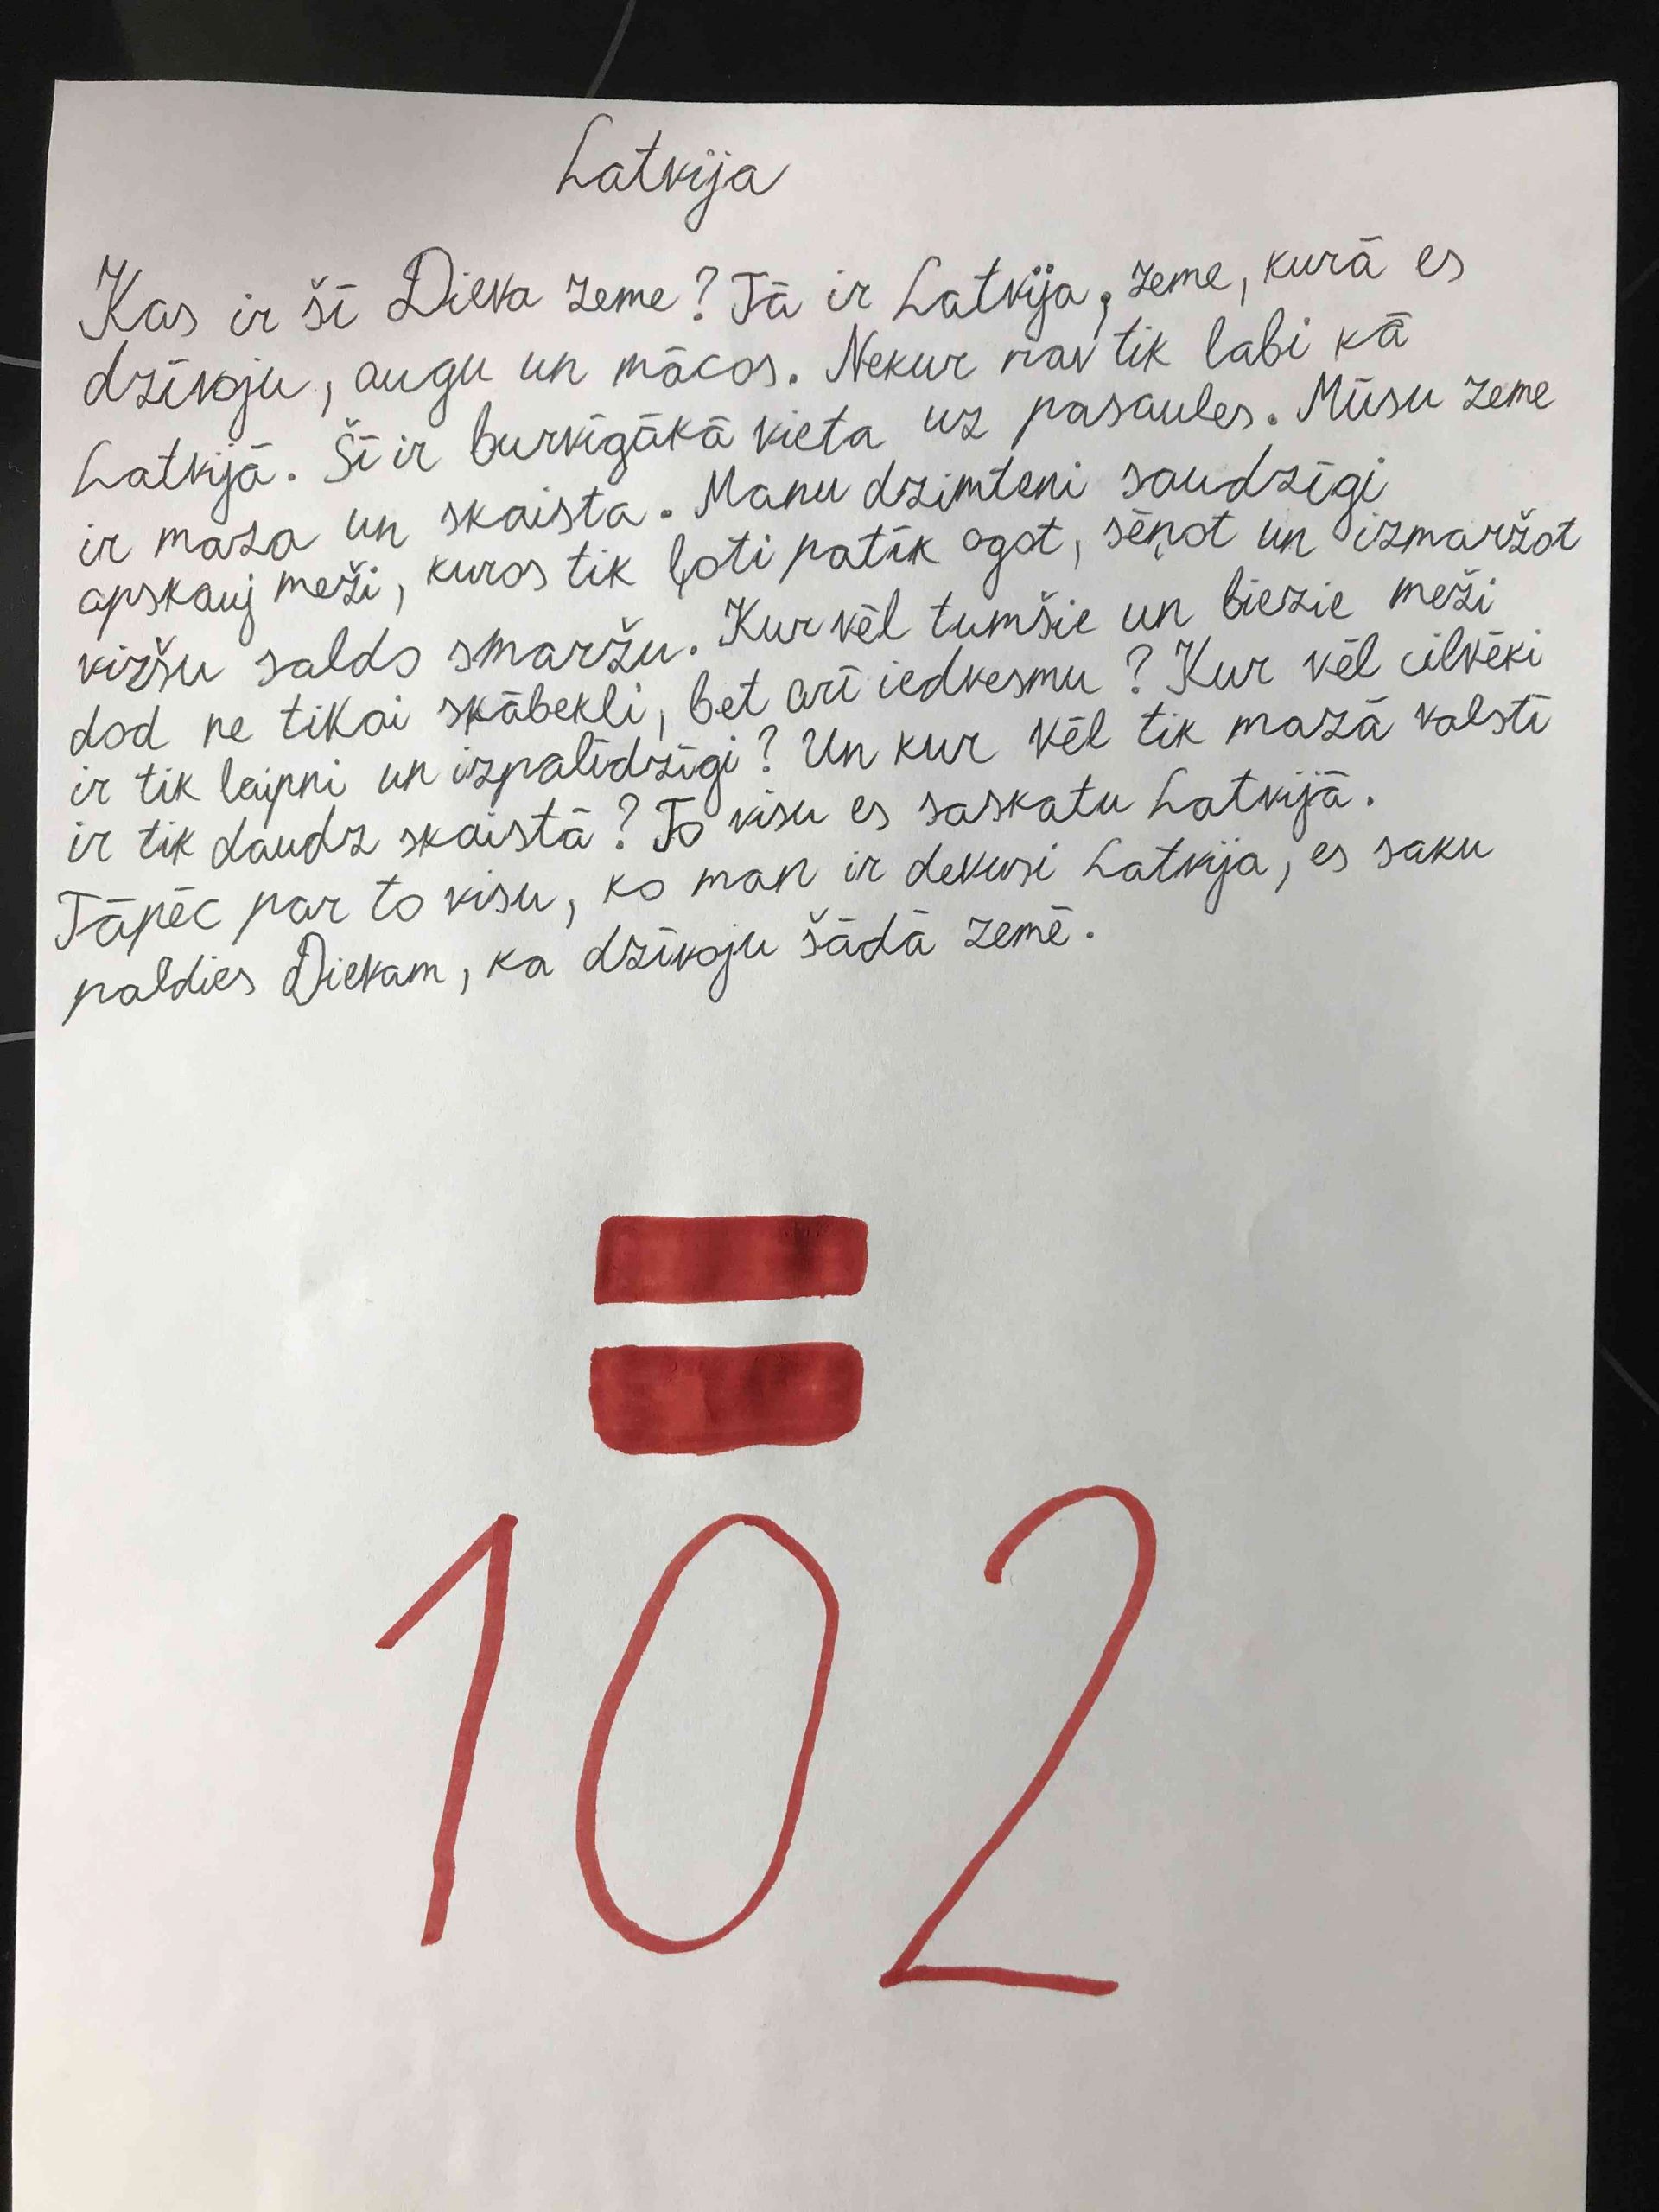 Latvija
Kas ir šī Dieva zeme? Tā ir Latvija, zeme, kurā es
dzīvoju, augu un mācos. Nekur nav tik labi kā
Latvijā. Šī ir burvīgākā vieta uz pasaules. Mūsu zeme
ir maza un skaista. Manu dzimteni saudzīgi
apskauj meži, kuros tik ļoti patīk ogot, sēņot un izmaržot
viršu saldo smaržu. Kur vēl tumšie un biezie meži
dod ne tikai skābekli, bet arī iedvesmu? Kur vēl cilvēki
ir tik laipni un izpalīdzīgi? Un kur vēl tik mazā valstī
ir tik daudz skaistā? To visu es saskatu Latvijā.
Tāpēc par to visu, ko man ir devusi Latvija, es saku
paldies Dievam, ka dzīvoju šādā zemē.
102